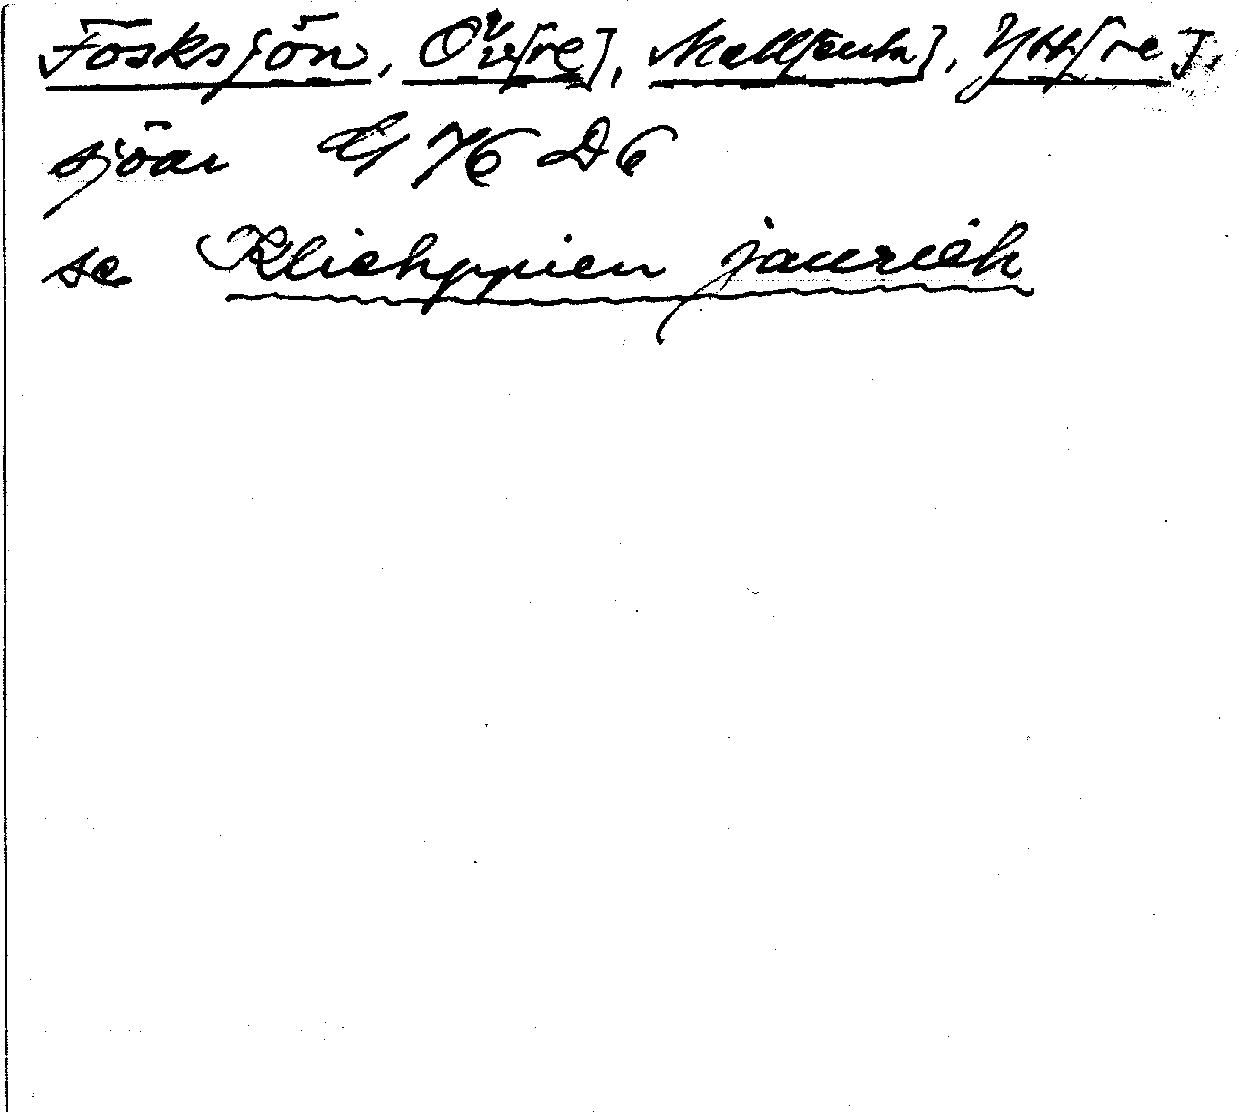 Fösksjön, Öv[re], Mell[ersta], Ytt[re],
sjöar G 76 D 6
se Kliehppien jaurieh